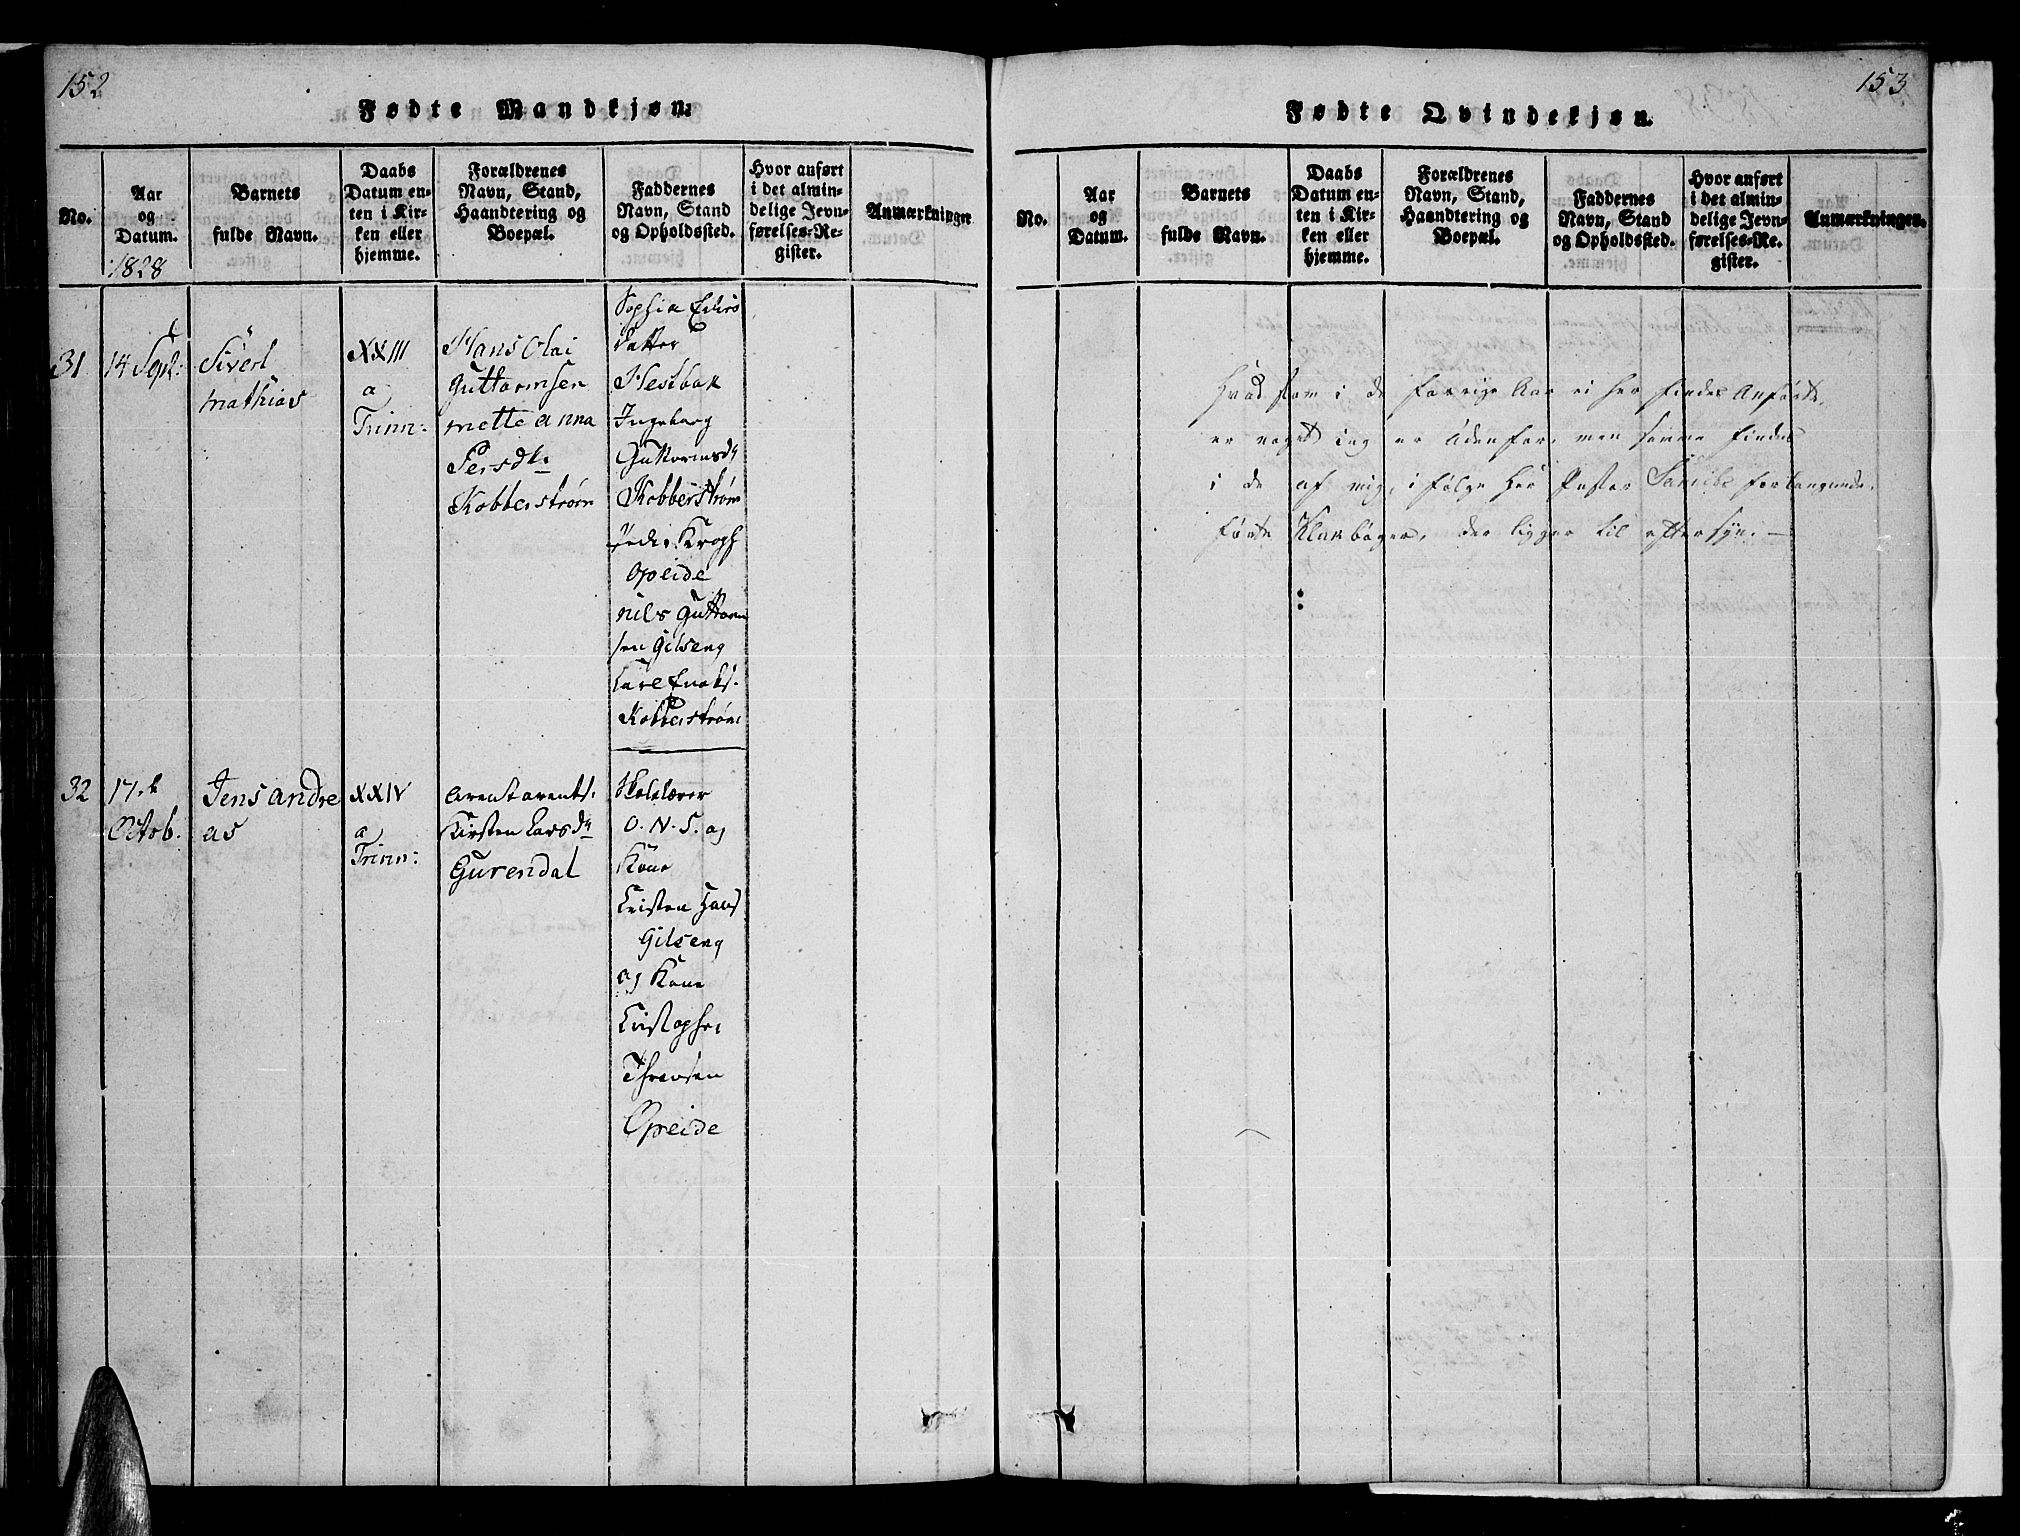 152
Fødte Mandkjøn.
No.
Aar
og
Datum.
Barnets
fulde Navn.
Daabs
Datum en-
ten i Kir-
ken eller
hjemme.
Forældrenes
Navn, Stand,
Haandtering og
Boepæl.
Faddernes
Navn, Stand
og Opholdssted.
Hvor anført
i det almin-
delige Jevn-
førelses-Re-
gister.
Anmærkninger
1828
31
14 Sept:
Sivert
Mathias
XXIII
a
Trinn:
Hans Olai
Guttormsen
Mette Anna
Persdtr
Kobberstrøm
Sophia
Datter
Hestbak
Ingeborg
Guttormsdr
Kobberstrøm
Peder Krogh
Opeide
Nils Guttorm
sen Gilseng
Kobberstrøm
32
17de
Octob.
Jens Andre
as
XXIV
a
Trinn:
Arent Arents.
Kirsten Larsdr
Gurendal
Skolelærer
O. N. S. og
Kone
Cristen Hans
Gilseng
og Kone
Cristopher
Opeide
153
Fødte Qvindekjøn.
No.
Aar
og
Datum.
Barnets
fulde Navn.
Daabs
Datum en-
ten i Kir-
ken eller
hjemme.
Forældrenes
Navn, Stand,
Haandtering og
Boepæl.
Faddernes
Navn, Stand
og Opholdssted.
Hvor anført
i det almin-
delige Jevn-
førelses-Re-
gister.
Anmærkninger.
Hvad som i de forrige Aar ei her findes Anførte,
er noget jeg er Udenfor, men samme findes
i de af mig, i følge Her Pastor forlangende,
førte Klakbøger, der ligger til eftersyn. —